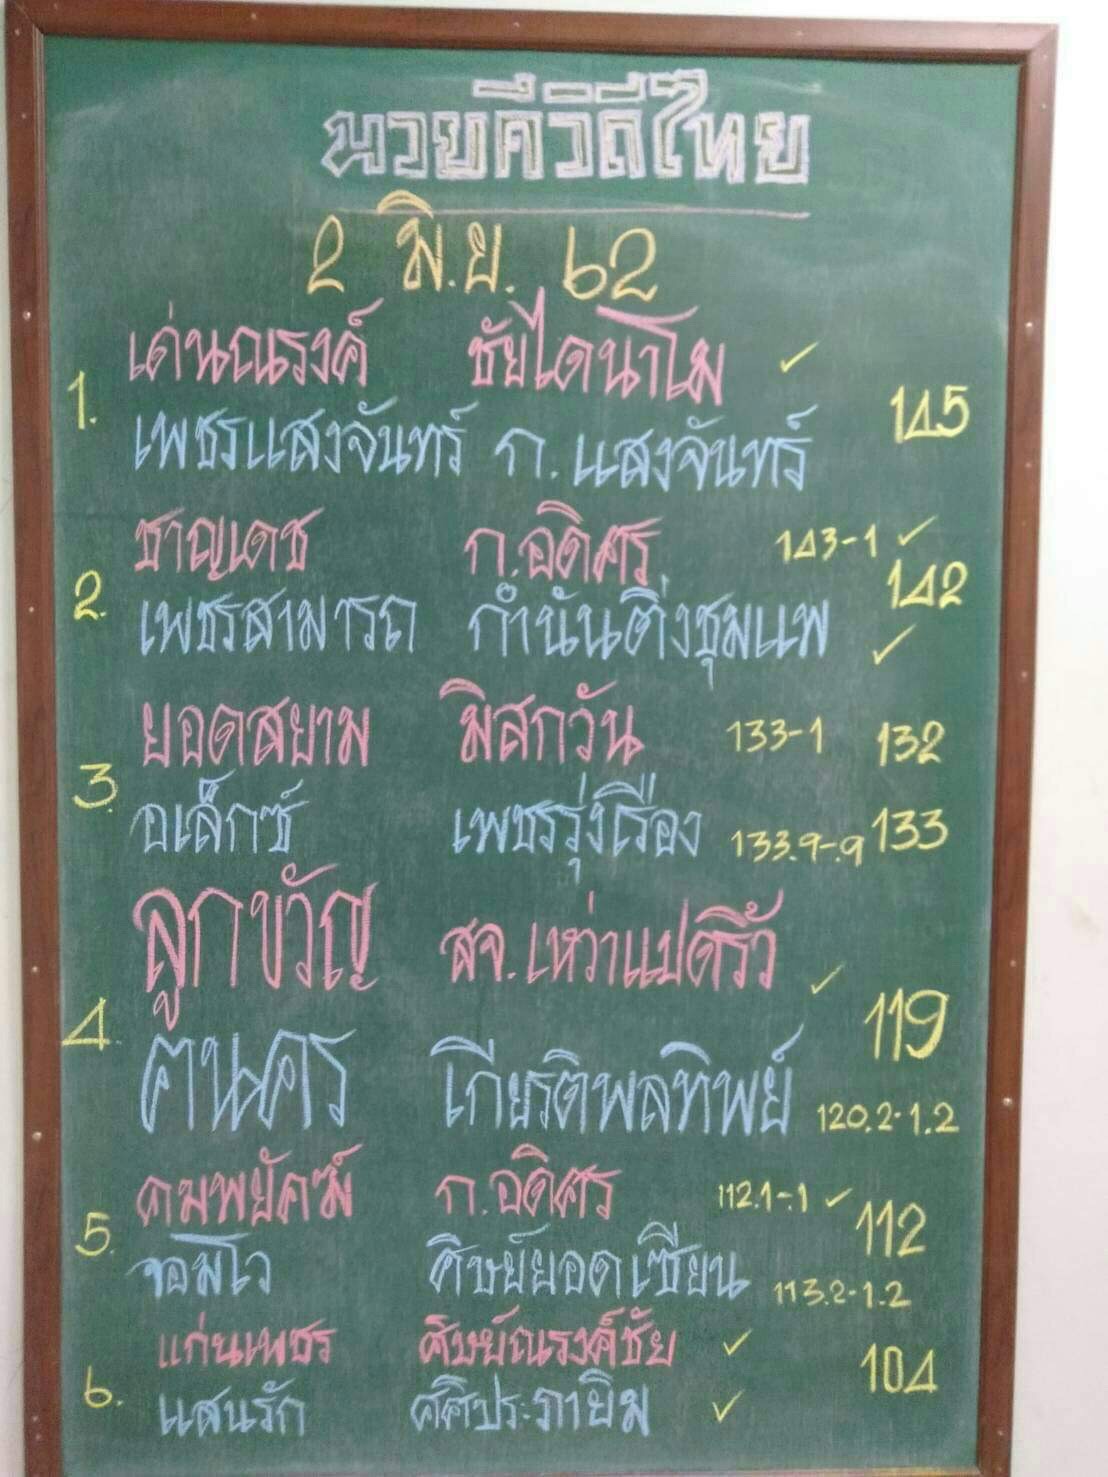 มวยดีวิถีไทย
2 มิ.ย. 62
1. เด่นณรงค์ ชัยไดนาโม ✓ 145
เพชรแสงจันทร์ ก.แสงจันทร์
2. ชาญเดช ก.อดิศร 143-1 ✓ 142
เพชรสามารถ กำนันติ่งชุมแพ ✓
3. ยอดสยาม มิสกวัน 133-1 132
อเล็กซ์ เพชรรุ่งเรือง 133.9-.9 133
4. ลูกขวัญ สจ.เหว่าแปดริ้ว ✓ 119
ฅนคร เกียรติพลทิพย์ 120.2-1.2
5. คมพยัคฆ์ ก.อดิศร 112.1-.1 ✓ 112
จอมโว ศิษย์ยอดเซียน 113.2-1.2
6. แก่นเพชร ศิษย์ณรงค์ชัย ✓ 104
แสนรัก ศศิประภายิม ✓